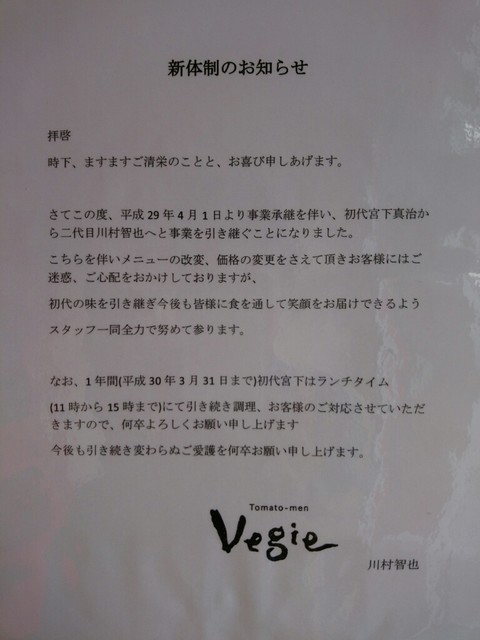 新体制のお知らせ
拝啓
時下、ますますご清栄のことと、お喜び申しあげます。
さてこの度、平成 29 年 4 月 1 日より事業承継を伴い、初代宮下真治か
ら二代目川村智也へと事業を引き継ぐことになりました。
こちらを伴いメニューの改変、価格の変更をさえて頂きお客様にはご
迷惑、ご心配をおかけしておりますが、
初代の味を引き継ぎ今後も皆様に食を通して笑顔をお届けできるよう
スタッフ一同全力で努めて参ります。
なお、1 年間(平成 30 年 3 月 31 日まで)初代宮下はランチタイム
(11 時から 15 時まで)にて引き続き調理、お客様のご対応させていただ
きますので、何卒よろしくお願い申し上げます
今後も引き続き変わらぬご愛護を何卒お願い申し上げます。
Tomato-men
Vegie
川村智也